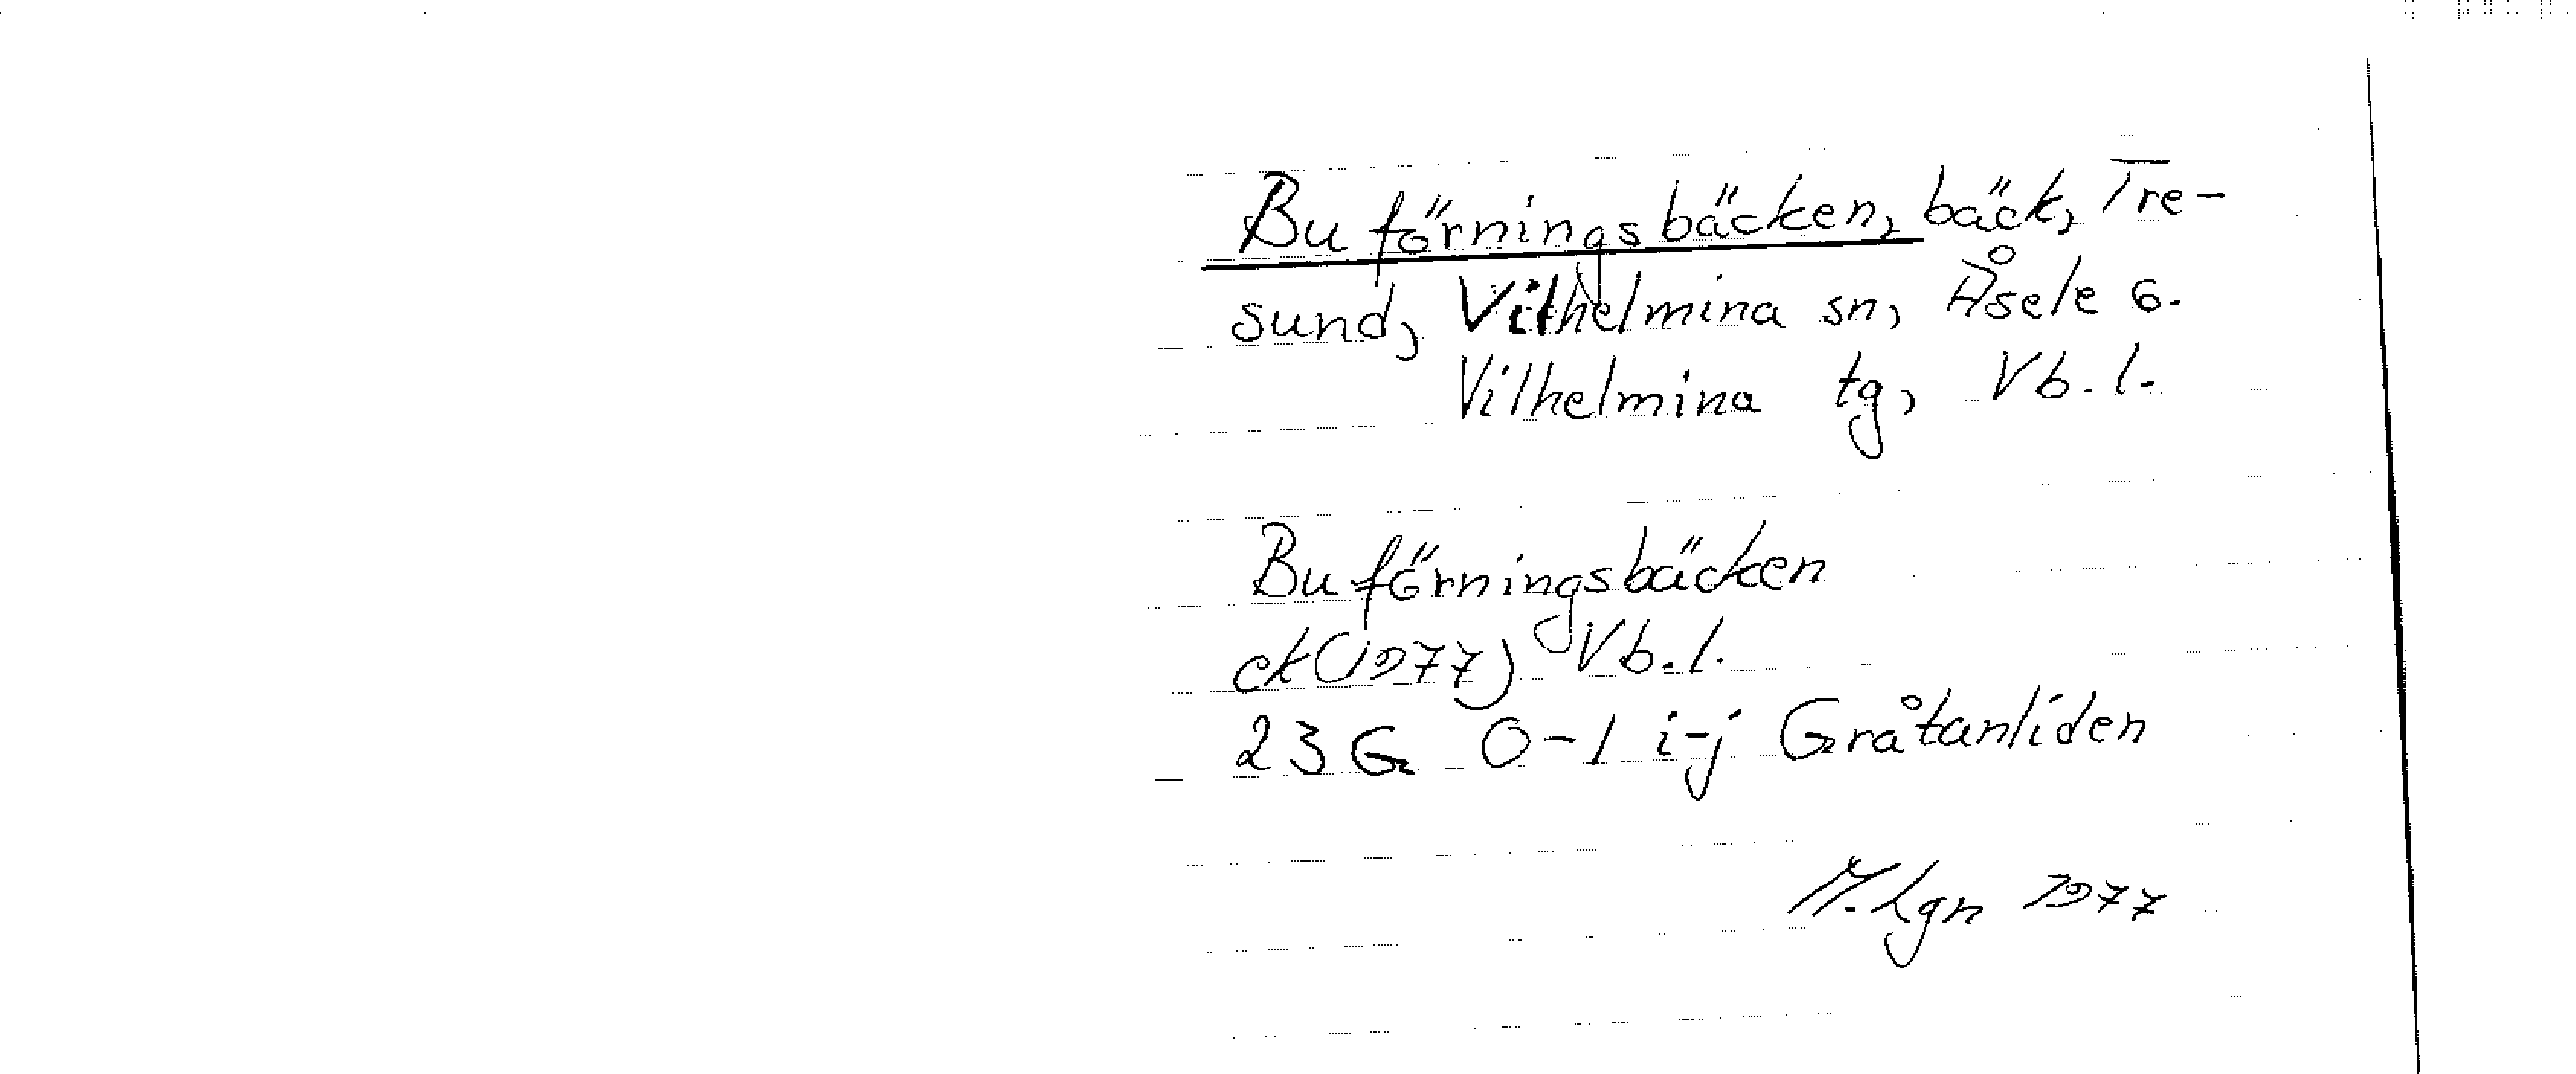 Buförningsbäcken, bäck, Tre-
sund, Vilhelmina sn, Åsele 6.
Vilhelmina tg, Vb. l.
Buförningsbäcken
ek (1977) Vb. l.
23 G 0-1 i-j Gråtanliden
M. Lgn 1977